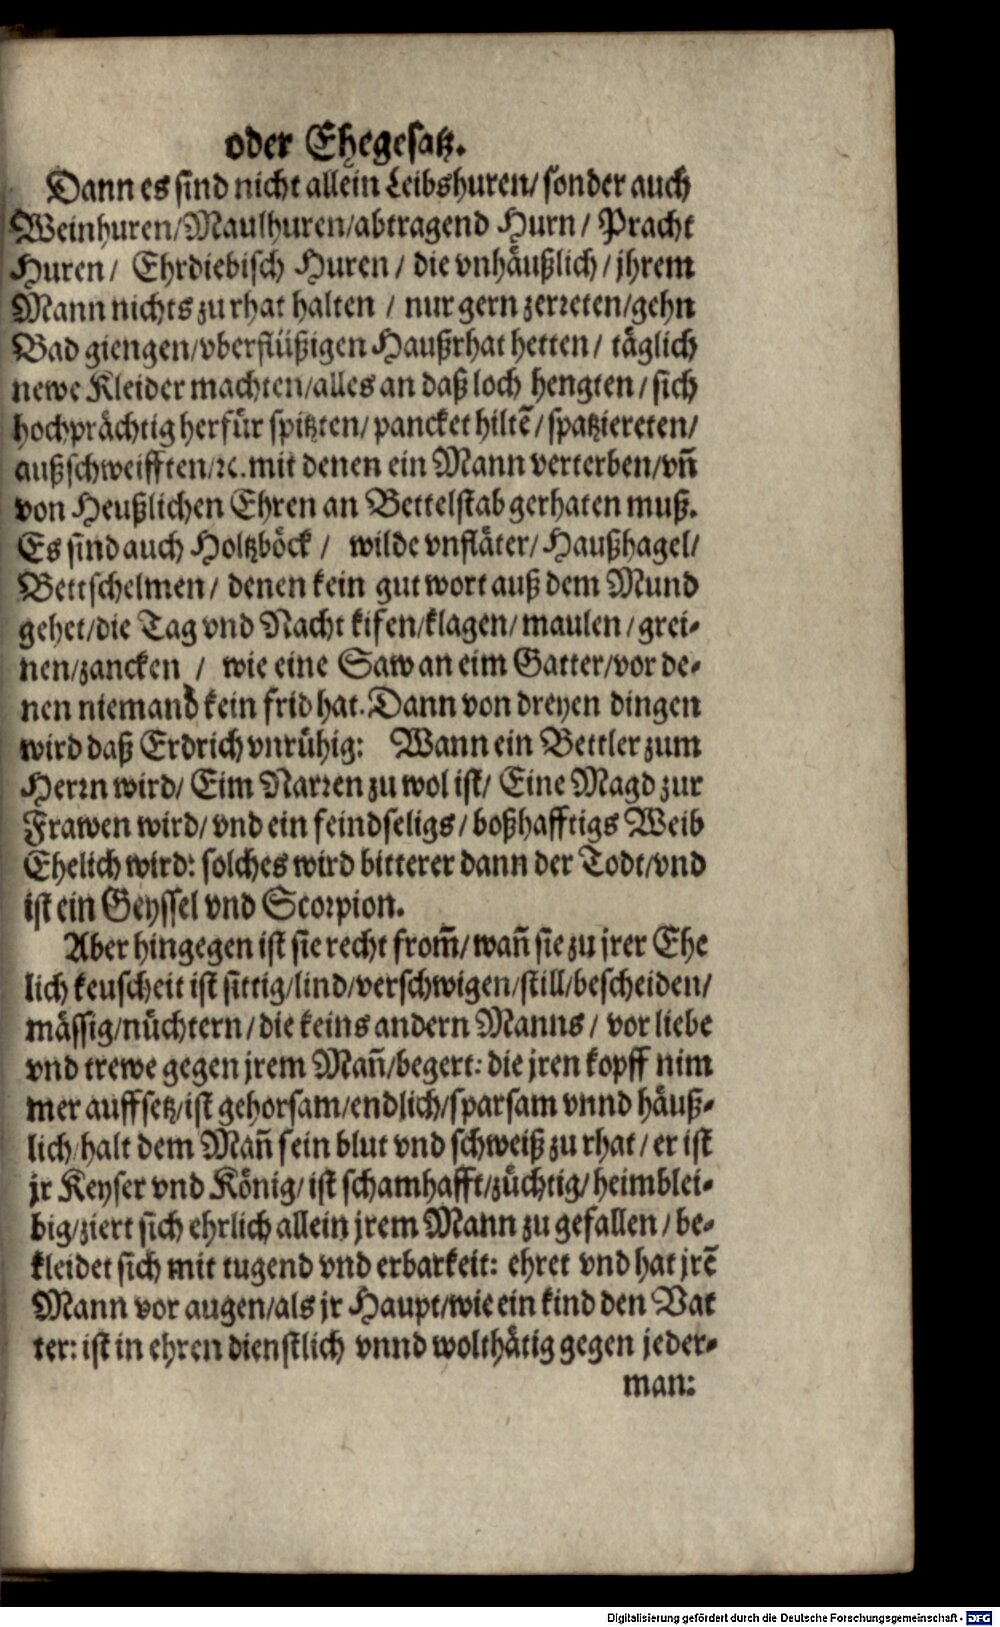 oder Ehegesatz.
Dann es sind nicht allein Leibshuren/ sonder auch
Weinhuren/Maulhuren/abtragend Hurn/ Pracht
Huren/ Ehrdiebisch Huren/ die vnhäußlich/ jhrem
Mann nichts zu rhat halten / nur gern zerreten/gehn
Bad giengen/vberflüßigen Haußrhat hetten/ täglich
newe Kleider machten/alles an daß loch hengten/ sich
hochprächtig herfür spitzten/ pancket hiltẽ/ spatziereten/
außschweifften/ꝛc. mit denen ein Mann verterben/vñ
von Heußlichen Ehren an Bettelstab gerhaten muß.
Es sind auch Holtzböck / wilde vnfläter/ Haußhagel/
Bettschelmen/ denen kein gut wort auß dem Mund
gehet/die Tag vnd Nacht kifen/klagen/ maulen/grei-
nen/zancken / wie eine Saw an eim Gatter/vor de-
nen niemand kein frid hat. Dann von dreyen dingen
wird daß Erdrich vnrühig: Wann ein Bettler zum
Herrn wird/ Eim Narren zu wol ist/ Eine Magd zur
Frawen wird/ vnd ein feindseligs/ boßhafftigs Weib
Ehelich wird: solches wird bitterer dann der Todt/vnd
ist ein Geyssel vnd Scorpion.
Aber hingegen ist sie recht from̃/ wañ sie zu jrer Ehe
lich keuscheit ist sittig/lind/verschwigen/still/bescheiden/
mässig/nüchtern/ die keins andern Manns/ vor liebe
vnd trewe gegen jrem Mañ/begert: die jren kopff nim
mer auffsetz/ist gehorsam/endlich/sparsam vnnd häuß-
lich/halt dem Mañ sein blut vnd schweiß zu rhat/ er ist
jr Keyser vnd König/ ist schamhafft/züchtig/ heimblei-
big/ziert sich ehrlich allein jrem Mann zu gefallen/ be-
kleidet sich mit tugend vnd erbarkeit: ehret vnd hat jrẽ
Mann vor augen/als jr Haupt/wie ein kind den Vat
ter: ist in ehren dienstlich vnnd wolthätig gegen jeder-
man:
Digitalisierung gefördert durch die Deutsche Forschungsgemeinschaft - DFG